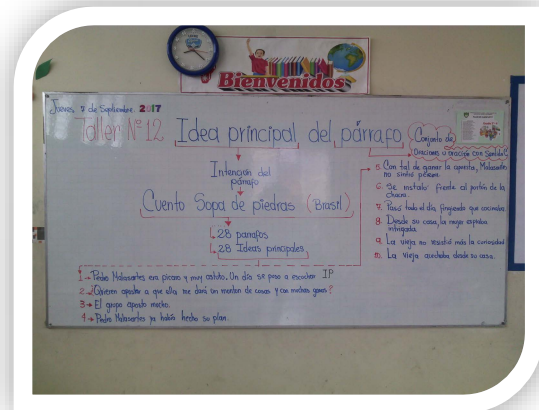 Bienvenidos
Jueves 7 de Septiembre. 2017
Taller N° 12 Idea principal del párrafo
Conjunto de
Oraciones u oración con sentido
Intención del
párrafo
Cuento Sopa de piedras (Brasil)
28 parrafos
28 Ideas principales
1 Pedro Malasartes era pícaro y muy astuto. Un día se puso a escuchar IP
2 ¿Quieren apostar a que ella me dará un monton de cosas y con muchas ganas?
3 El grupo aposto mucho.
4 Pedro Malasartes ya había hecho su plan.
5. Con tal de ganar la apuesta, Malasartes
no sintió
6. Se instaló frente al portón de la
chacra.
7. Pasó todo el día fingiendo que cocinaba.
8. Desde su casa, la vieja espiaba
intrigada.
9. La vieja no resistió más la curiosidad
10. La vieja aguaitaba desde su casa.